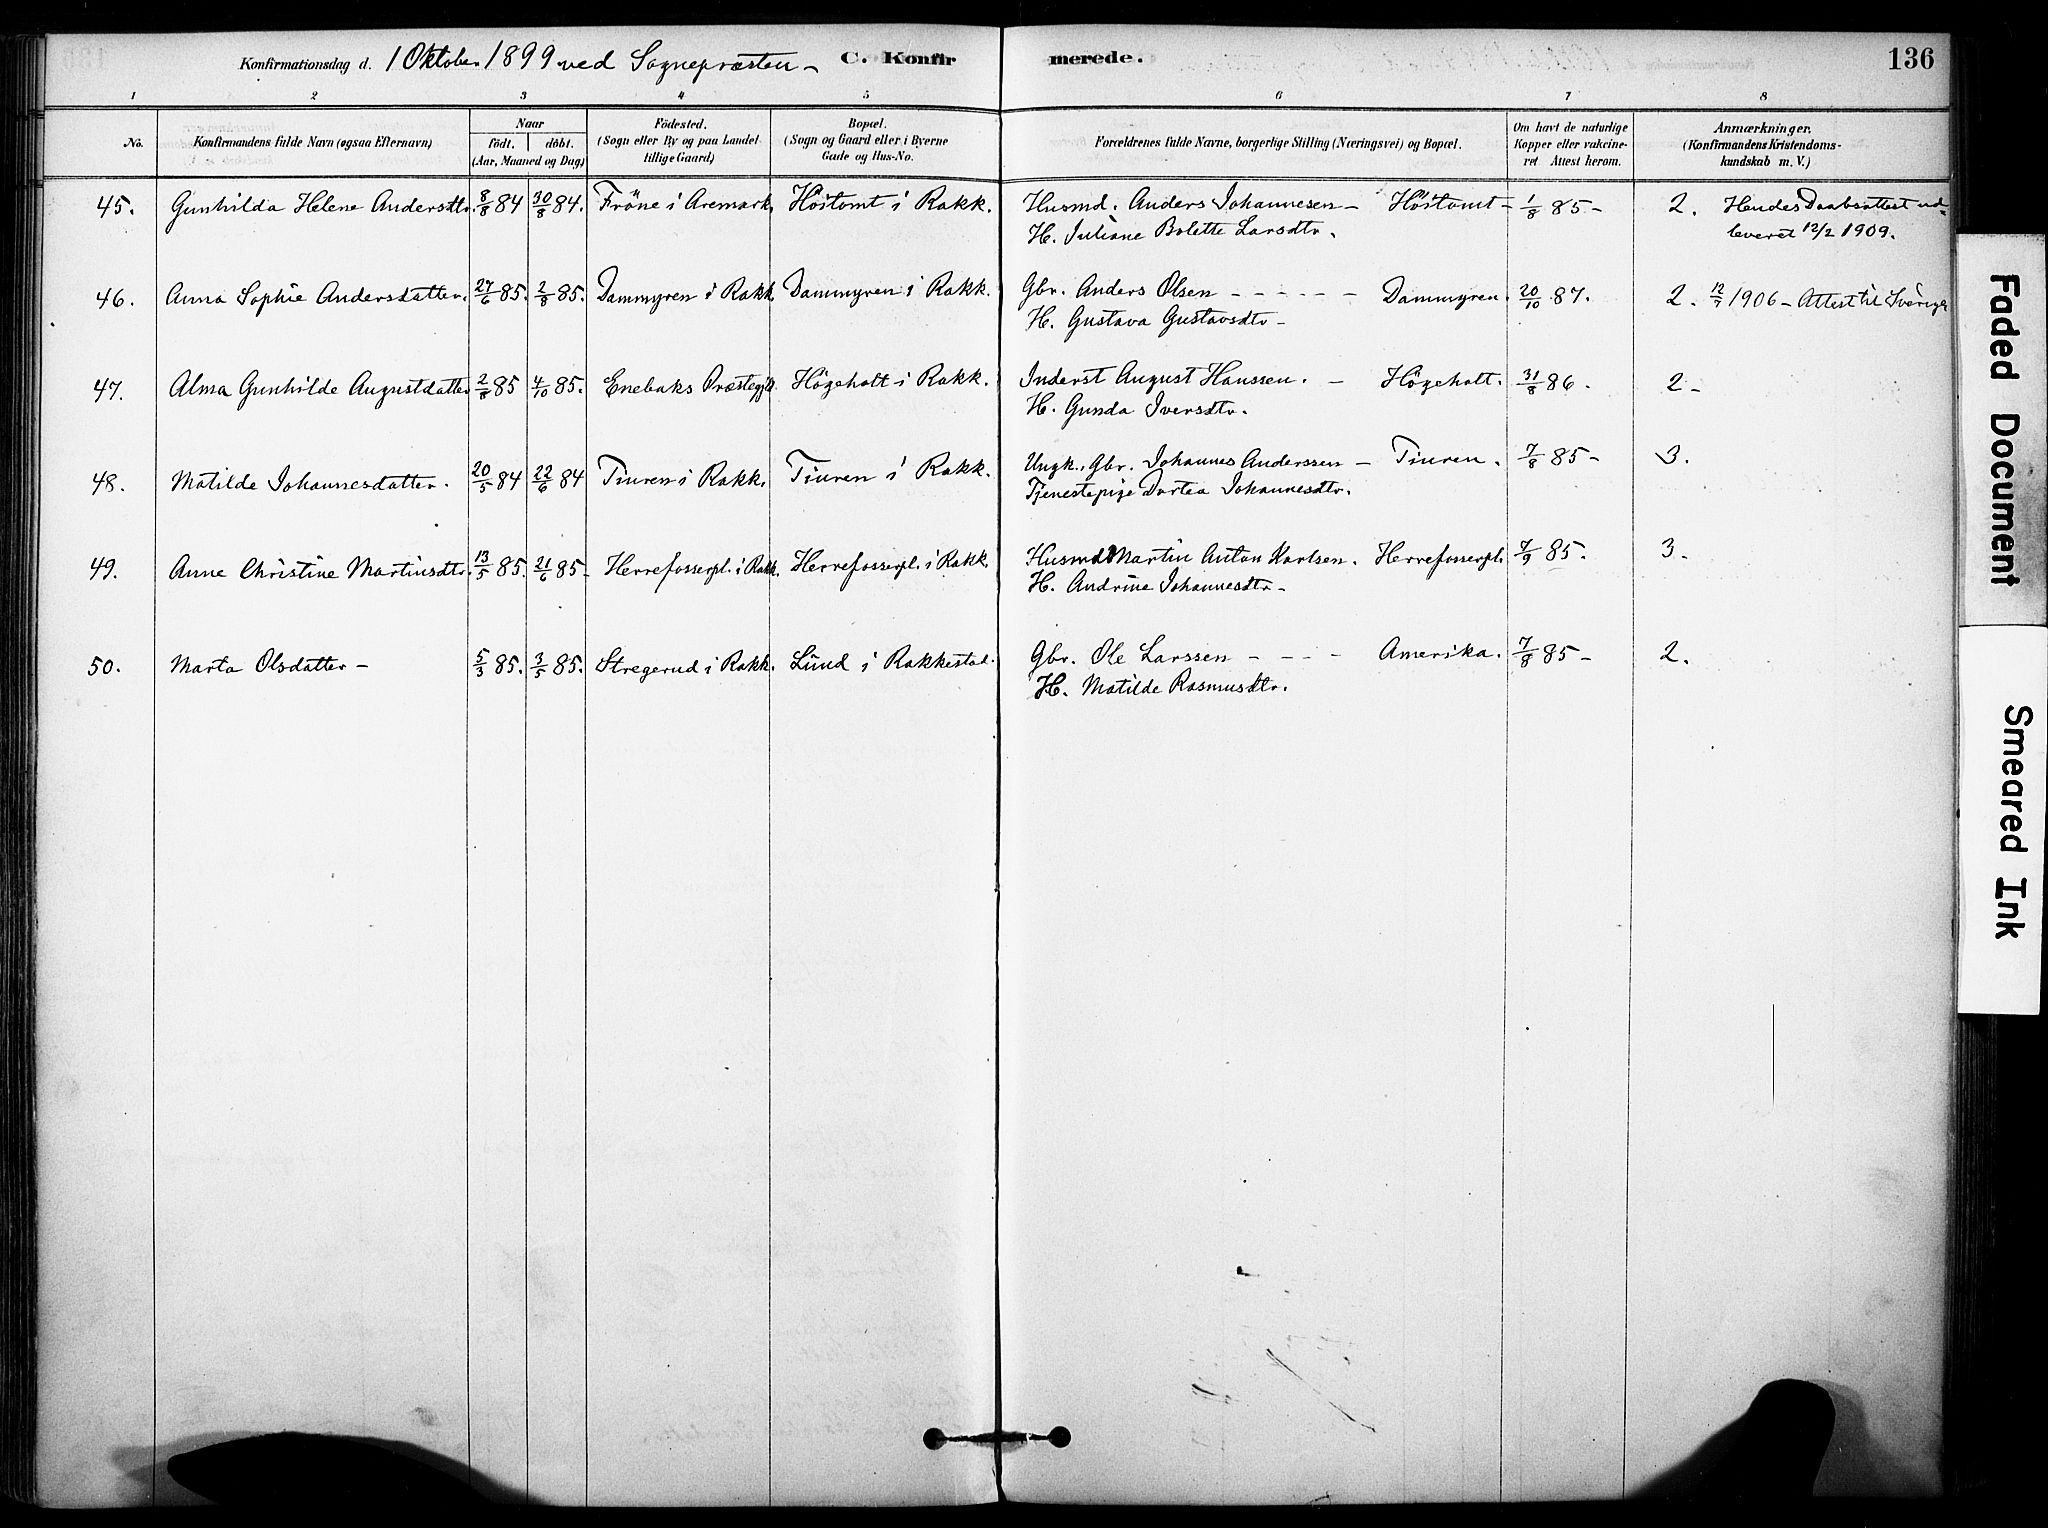 Konfirmationsdag d. 1 Oktober 1899 ved Sognepræsten – C. Konfirmerede. 136
1 2 3 4 5 6 7 8
No. Konfirmandens fulde Navn (ogsaa Efternavn)
Naar
födt. döbt.
(Aar, Maaned og Dag)
Födested.
(Sogn eller By og paa Landet
tillige Gaard)
Bopæl.
(Sogn og Gaard eller i Byerne
Gade og Hus-No.
Forældrenes fulde Navne, borgerlige Stilling (Næringsvei) og Bopæl.
Om havt de naturlige
Kopper eller vakcine-
ret Attest herom.
Anmærkninger.
(Konfirmandens Kristendoms-
kundskab m. V.)
45. Gunhilda Helene Andersdtr. 8/8 84 30/8 84. Fröne i Aremark. Höitomt i Rakk. Husmd. Anders Johannesen – Höitomt – 1/8 85 – 2. Hendes Daabsattest ud-
H. Juliane Bolette Larsdtr. leveret 12/2 1909.
46. Anna Sophie Andersdatter. 27/6 85. 2/8 85. Dammyren i Rakk. Dammyren i Rakk. Gbr. Anders Olsen – – – – – Dammyren. 20/10 87. 2. 12/7 1906 – Attest til Sverige
H. Gustava Gustavsdtr –
47. Alma Gunhilde Augustdatter 2/8 85 4/10 85. Enebaks Præstegjld. Högeholt i Rakk. Inderst August Hanssen. – Högeholt. 31/8 86. 2 –
H. Gunda Iversdtr.
48. Matilde Johannesdatter. 20/5 84 22/6 84 Tiuren i Rakk. Tiuren i Rakk. Ungk. Gbr. Johannes Anderssen – Tiuren. 7/8 85 – 3.
Tjenestepige Dortea Johannesdtr.
49. Anne Christine Martinsdtr. 13/5 85. 21/6 85 – Herrefosserpl. i Rakk. Herrefosserpl. i Rakk. Husmd Martin Anton Karlsen. Herrefosserpl. 7/9 85. 3.
H. Andrine Johannesdtr –
50. Marta Olsdatter – 5/3 85. 3/5 85. Stregerud i Rakk. Lund i Rakkestad. Gbr. Ole Larssen – – – Amerika. 7/8 85 – 2.
H. Matilde Rasmusdtr.
Faded Document
Smeared Ink